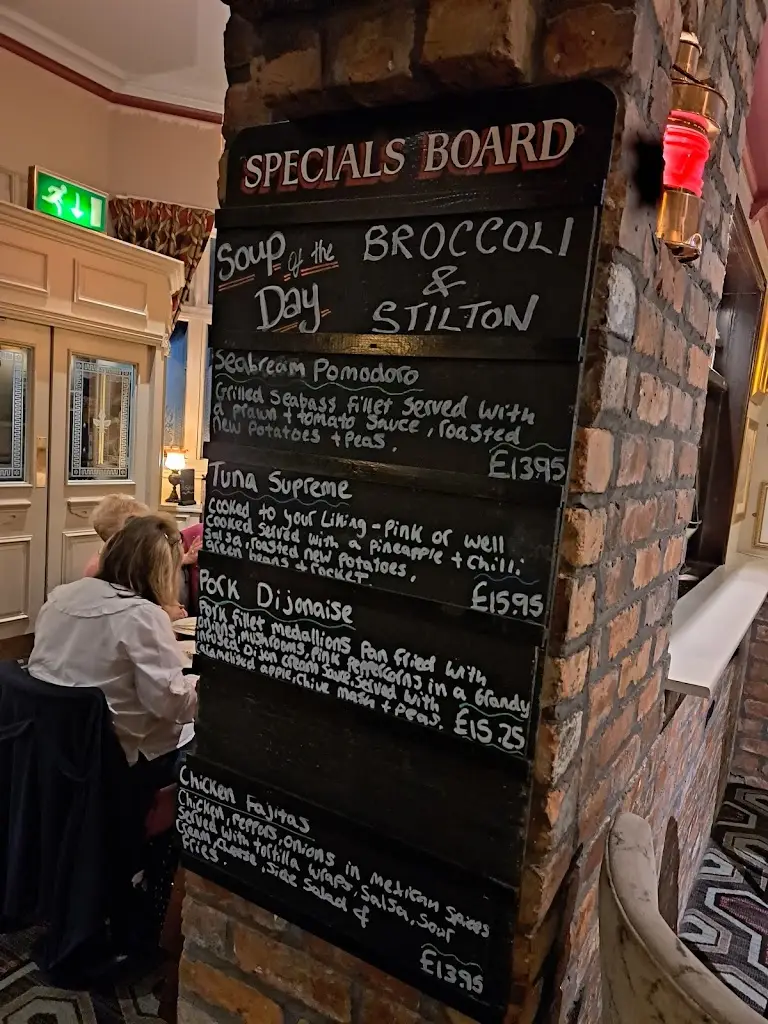 SPECIALS BOARD
Soup of the Day BROCCOLI & STILTON
Seabream Pomodoro
Grilled Seabass fillet served with
a prawn + tomato sauce, roasted
new potatoes + peas.
£13.95
Tuna Supreme
Cooked to your Liking - pink or well
cooked served with a pineapple + chilli
salsa, roasted new potatoes,
green beans + rocket
£15.95
Pork Dijonaise
Pork fillet medallions pan fried with
onions, mushrooms, pink peppercorns in a brandy
infused Dijon cream sauce, served with
caramelised apple, chive mash + peas. £15.25
Chicken Fajitas
Chicken, peppers, onions in mexican spices
served with tortilla wraps, salsa, sour
cream, cheese, side salad &
fries.
£13.95